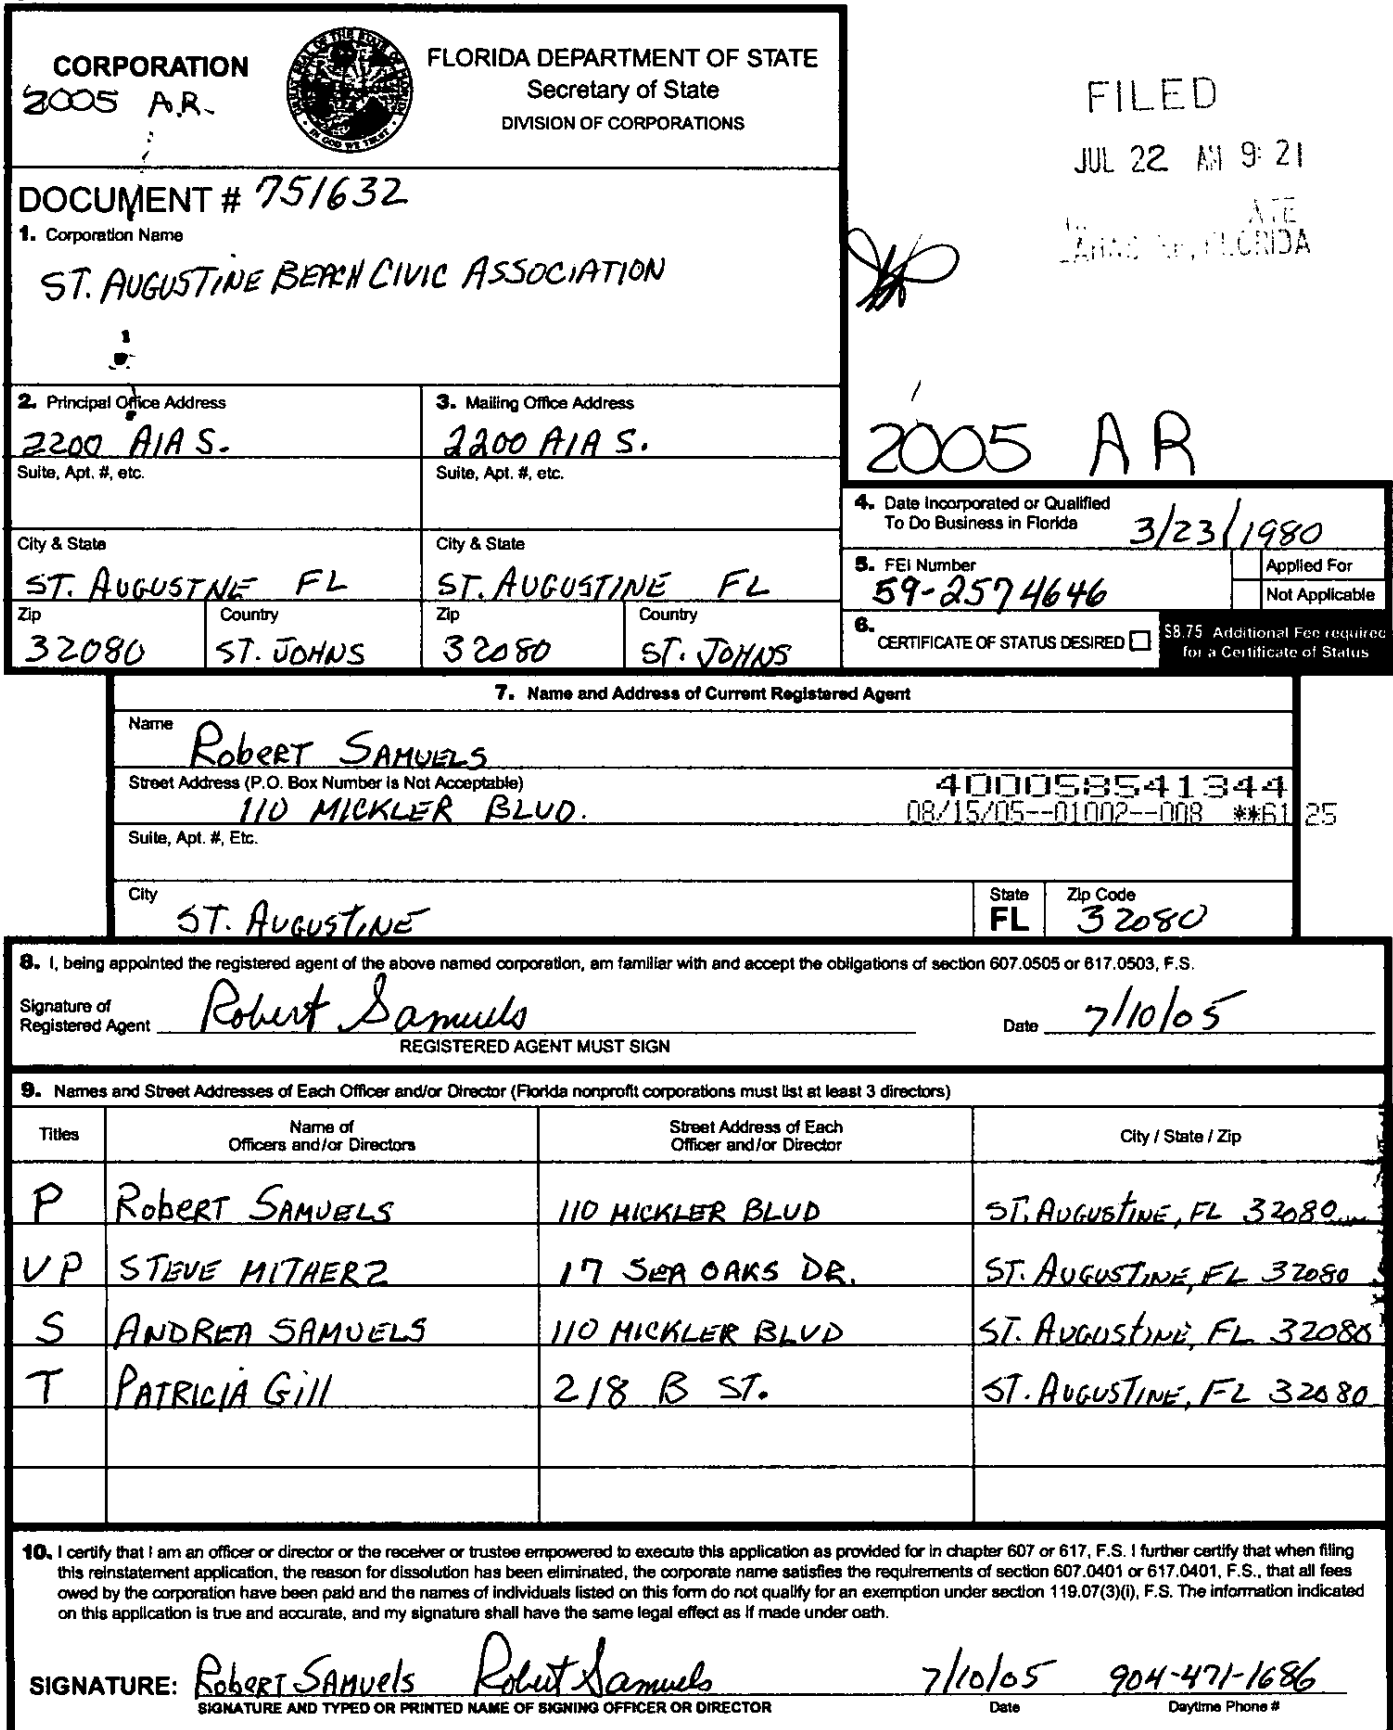 CORPORATION
2005 A.R.
FLORIDA DEPARTMENT OF STATE
Secretary of State
DIVISION OF CORPORATIONS
FILED
JUL 22 AM 9:21
FLORIDA
DOCUMENT # 751632
1. Corporation Name
ST. AUGUSTINE BEACH CIVIC ASSOCIATION
2005 AR
2. Principal Office Address
2200 A1A S.
Suite, Apt. #, etc.
City & State
ST. AUGUSTNE FL
Zip
32080
Country
ST. JOHNS
3. Mailing Office Address
2200 A1A S.
Suite, Apt. #, etc.
City & State
ST. AUGUSTINE FL
Zip
32080
Country
ST. JOHNS
4. Date Incorporated or Qualified
To Do Business in Florida
3/23/1980
5. FEI Number
59-2574646
Applied For
Not Applicable
6.
CERTIFICATE OF STATUS DESIRED
$8.75 Additional Fee required
for a Certificate of Status
7. Name and Address of Current Registered Agent
Name
Robert SAMUELS
Street Address (P.O. Box Number is Not Acceptable)
110 MICKLER BLVD.
400058541344
08/15/05--01002--008 **61.25
Suite, Apt. #, Etc.
City
ST. AUGUSTINE
State
FL
Zip Code
32080
8. I, being appointed the registered agent of the above named corporation, am familiar with and accept the obligations of section 607.0505 or 617.0503, F.S.
Signature of
Registered Agent
Robert Samuels
REGISTERED AGENT MUST SIGN
Date 7/10/05
9. Names and Street Addresses of Each Officer and/or Director (Florida nonprofit corporations must list at least 3 directors)
Titles
Name of
Officers and/or Directors
Street Address of Each
Officer and/or Director
City / State / Zip
P Robert SAMUELS 110 MICKLER BLVD ST. AUGUSTINE, FL 32080
VP STEVE MITHERZ 17 SEA OAKS DR. ST. AUGUSTINE, FL 32080
S ANDREA SAMUELS 110 MICKLER BLVD ST. AUGUSTINE, FL 32080
T PATRICIA Gill 218 B ST. ST. AUGUSTINE, FL 32080
10. I certify that I am an officer or director or the receiver or trustee empowered to execute this application as provided for in chapter 607 or 617, F.S. I further certify that when filing
this reinstatement application, the reason for dissolution has been eliminated, the corporate name satisfies the requirements of section 607.0401 or 617.0401, F.S., that all fees
owed by the corporation have been paid and the names of individuals listed on this form do not qualify for an exemption under section 119.07(3)(i), F.S. The information indicated
on this application is true and accurate, and my signature shall have the same legal effect as if made under oath.
SIGNATURE: Robert SAMUELS Robert Samuels 7/10/05 904-471-1686
SIGNATURE AND TYPED OR PRINTED NAME OF SIGNING OFFICER OR DIRECTOR Date Daytime Phone #